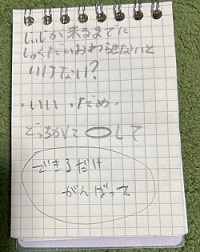 じいじが来るまでに
しゅくだいおわらせないと
いけない?
・いい ・だめ
どっちかに〇して
できるだけ
がんばって